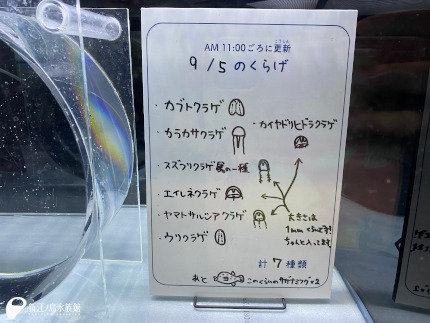 AM 11:00ごろに更新
こうしん
9/5のくらげ
・カブトクラゲ
・カラカサクラゲ
・カイヤドリヒドラクラゲ
・スズフリクラゲ属の一種
・エイレネクラゲ
・ヤマトサルシアクラゲ
・ウリクラゲ
大きさは
1mmくらいです!
ちゃんと入ってます
計7種類
あと
このくらいの
×2